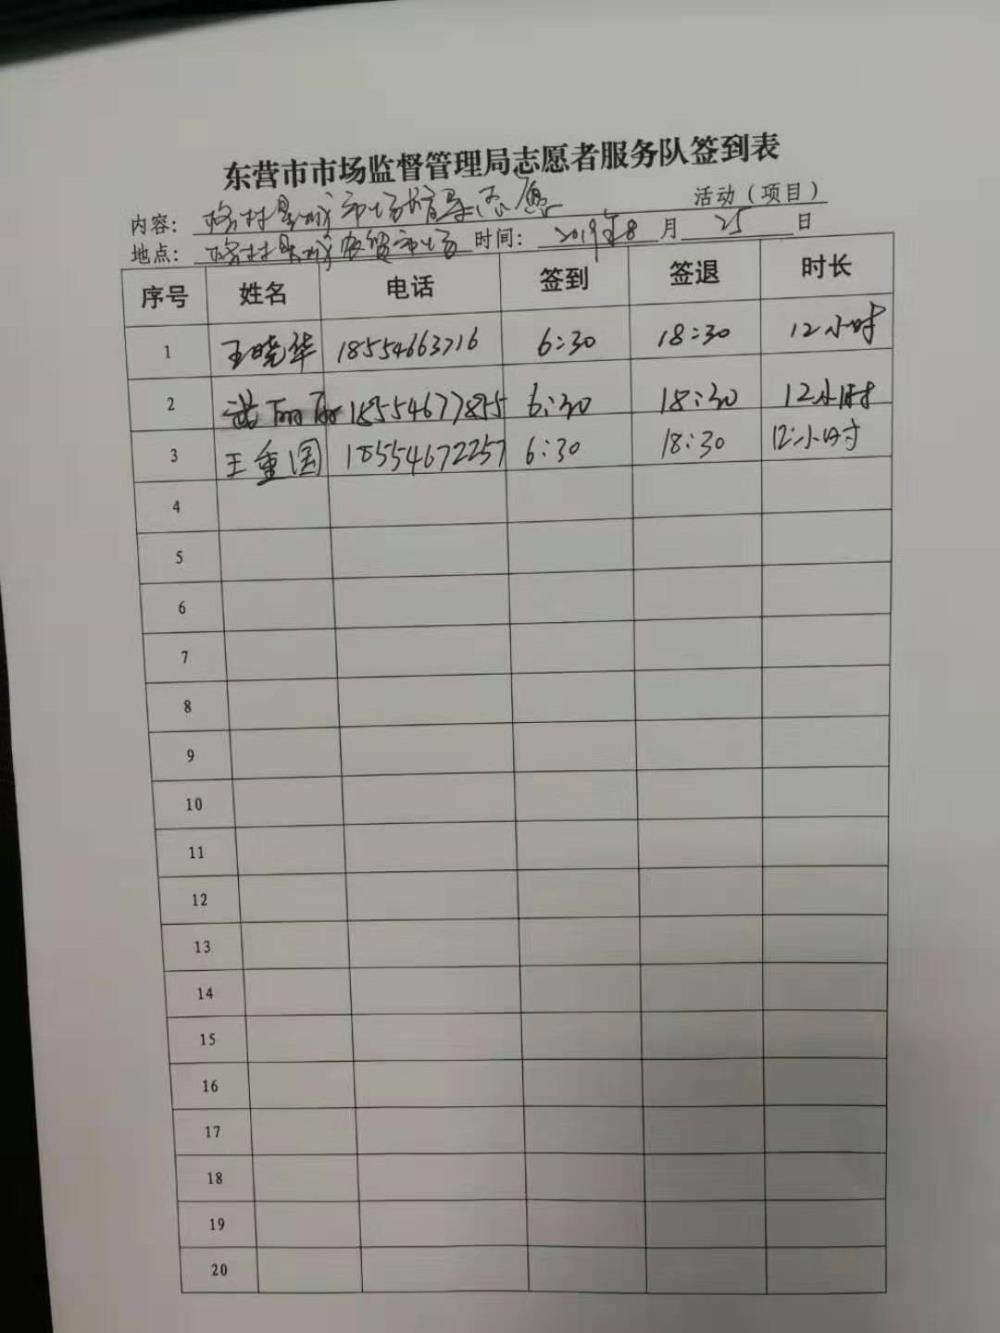 东营市市场监督管理局志愿者服务队签到表
内容： 市场督导志愿 活动（项目）
地点： 农贸市场 时间： 2019年8 月 25 日
序号 姓名 电话 签到 签退 时长
1 王晓华 18554663716 6:30 18:30 12小时
2 丽丽 18554677855 6:30 18:30 12小时
3 王重国 18554672257 6:30 18:30 12小时
4
5
6
7
8
9
10
11
12
13
14
15
16
17
18
19
20